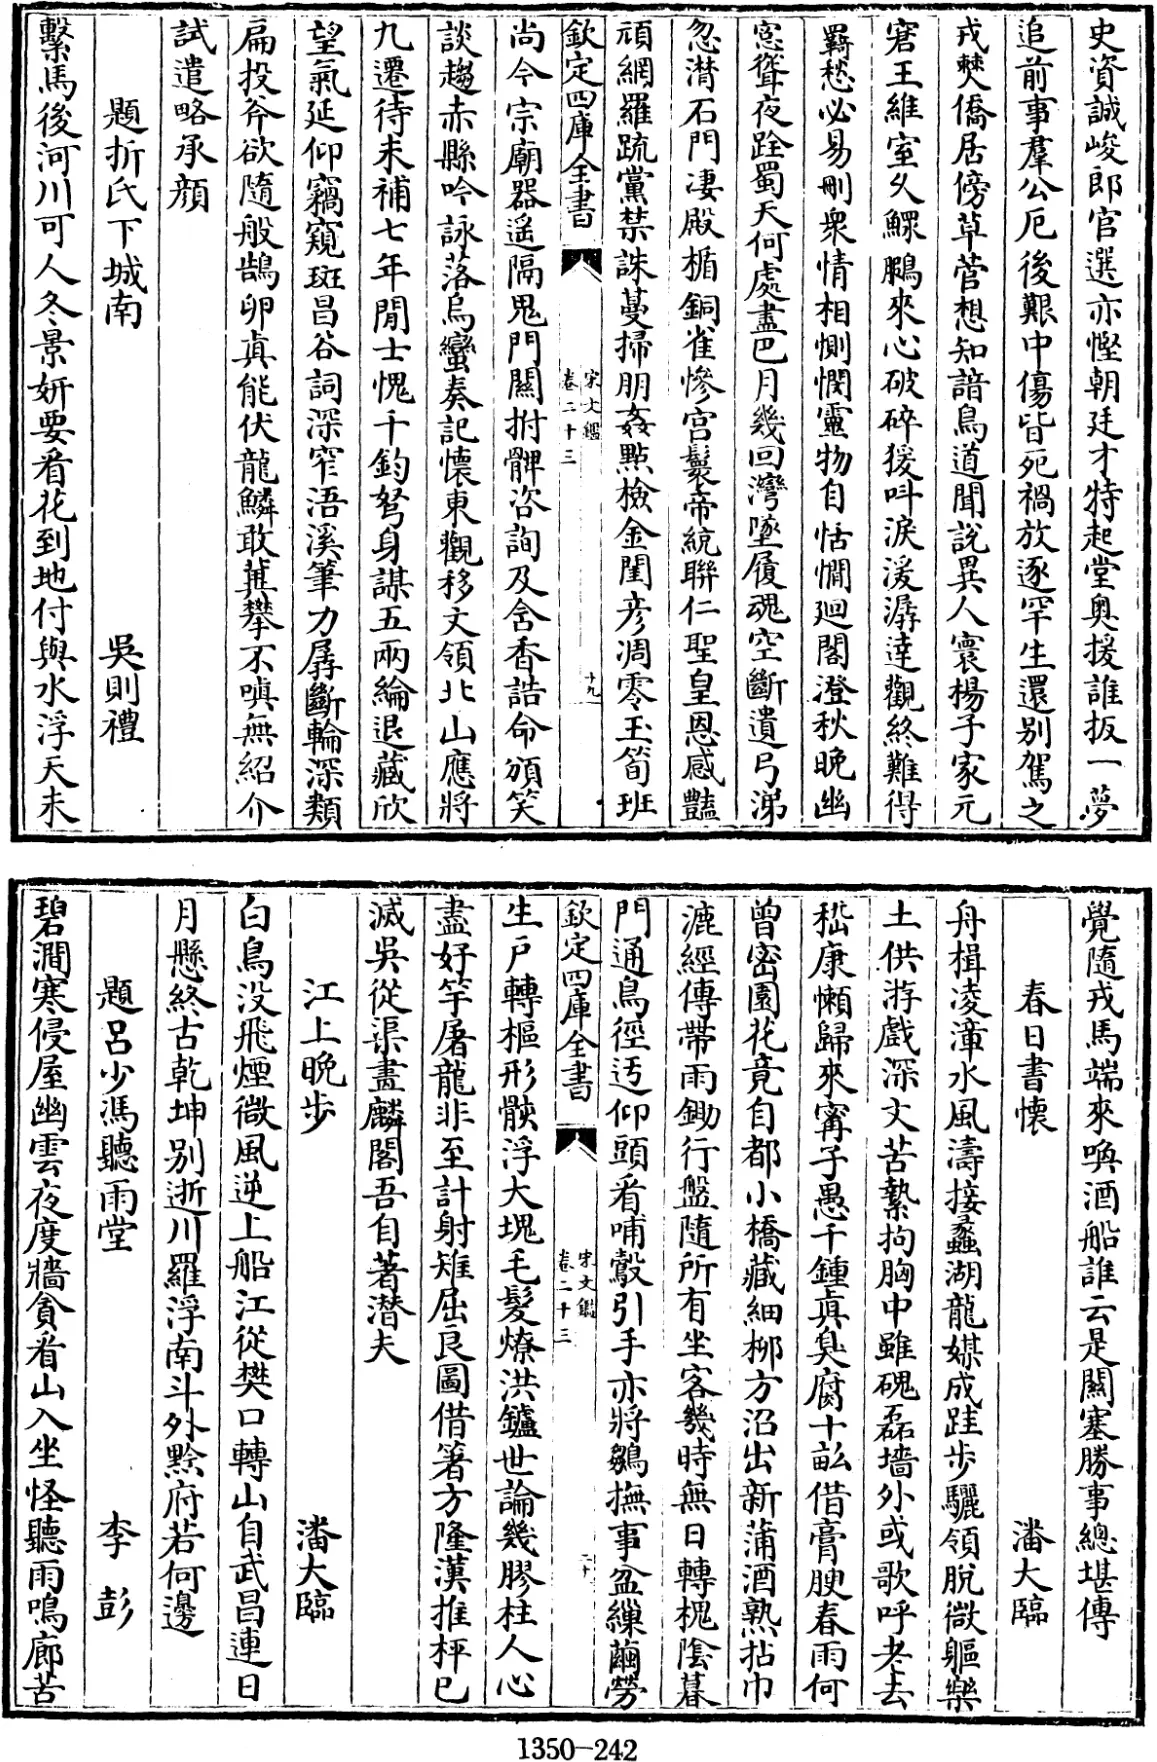 史資誠峻郎官選亦慳朝廷才特起堂奥援誰扳一夢
追前事羣公厄後艱中傷皆死禍放逐罕生還别駕之
戎僰僑居傍草菅想知諳鳥道聞說異人寰楊子家元
窘王維室乆鰥鵩來心破碎猨叫淚潺湲達觀終難得
羇愁必易刪衆情相惻憫靈物自恬憪廻閣澄秋晩幽
窓聳夜跧蜀天何處盡巴月幾回灣墜履魂空斷遺弓涕
忽潸石門凄殿楯銅雀慘宫鬟帝統聯仁聖皇恩感豔
頑網羅疏黨禁誅蔓掃朋姦點檢金閨彦凋零玉筍班
欽定四庫全書
宋文鑑
卷二十三
十九
尚令宗廟器遥隔鬼門關拊髀咨詢及含香誥命頒笑
談趨赤縣吟詠落烏蠻奏記懷東觀移文領北山應將
九遷待未補七年閒士愧千鈞弩身謀五兩綸退藏欣
望氣延仰竊窺斑昌谷詞深窄浯溪筆力孱斷輪深類
扁投斧欲隨般鵠卵真能伏龍鱗敢冀攀不嗔無紹介
試遣略承顔
題折氏下城南
吳則禮
繫馬後河川可人冬景妍要看花到地付與水浮天未
覺隨戎馬端來喚酒船誰云是關塞勝事總堪傳
春日書懷
潘大臨
舟楫凌漳水風濤接蠡湖龍媒成跬歩驪頷脱微軀樂
土供游戲深文苦縶拘胸中雖磈磊墻外或歌呼老去
嵇康懶歸來寗子愚千鍾真臭腐十畆借膏腴春雨何
曾密園花竟自都小橋藏細栁方沼出新蒲酒熟拈巾
漉經傳帶雨鋤行盤隨所有坐客幾時無日轉槐隂暮
門通鳥徑迃仰頭看哺鷇引手亦將鶵撫事盆繅繭勞
欽定四庫全書
宋文鑑
卷二十三
二十
生戸轉樞形骸浮大塊毛髮燎洪鑪世論幾膠柱人心
盡好竽屠龍非至計射雉屈良圖借箸方隆漢推枰已
滅吳從渠畫麟閣吾自著潜夫
江上晩歩
潘大臨
白鳥没飛煙微風逆上船江從樊口轉山自武昌連日
月懸終古乾坤别逝川羅浮南斗外黔府若何邊
題吕少馮聽雨堂
李彭
碧澗寒侵屋幽雲夜度墻貪看山入坐怪聽雨鳴廊苦
1350-242